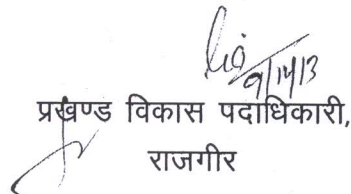 प्रखण्ड विकास पदाधिकारी,
राजगीर